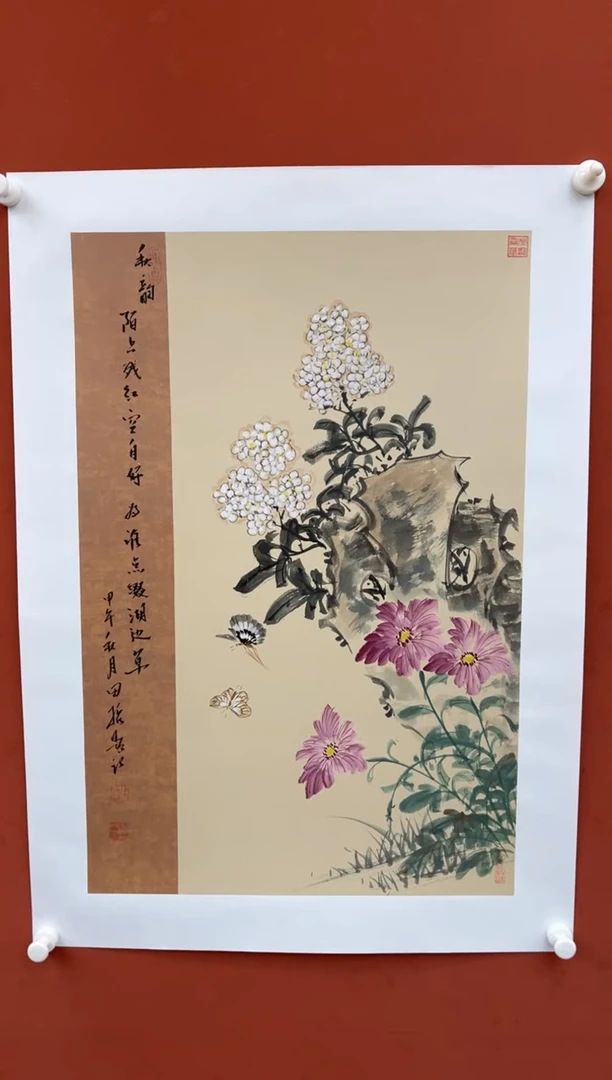 秋韵
陌上残红空自好 为谁点缀湖边草
甲午秋月田